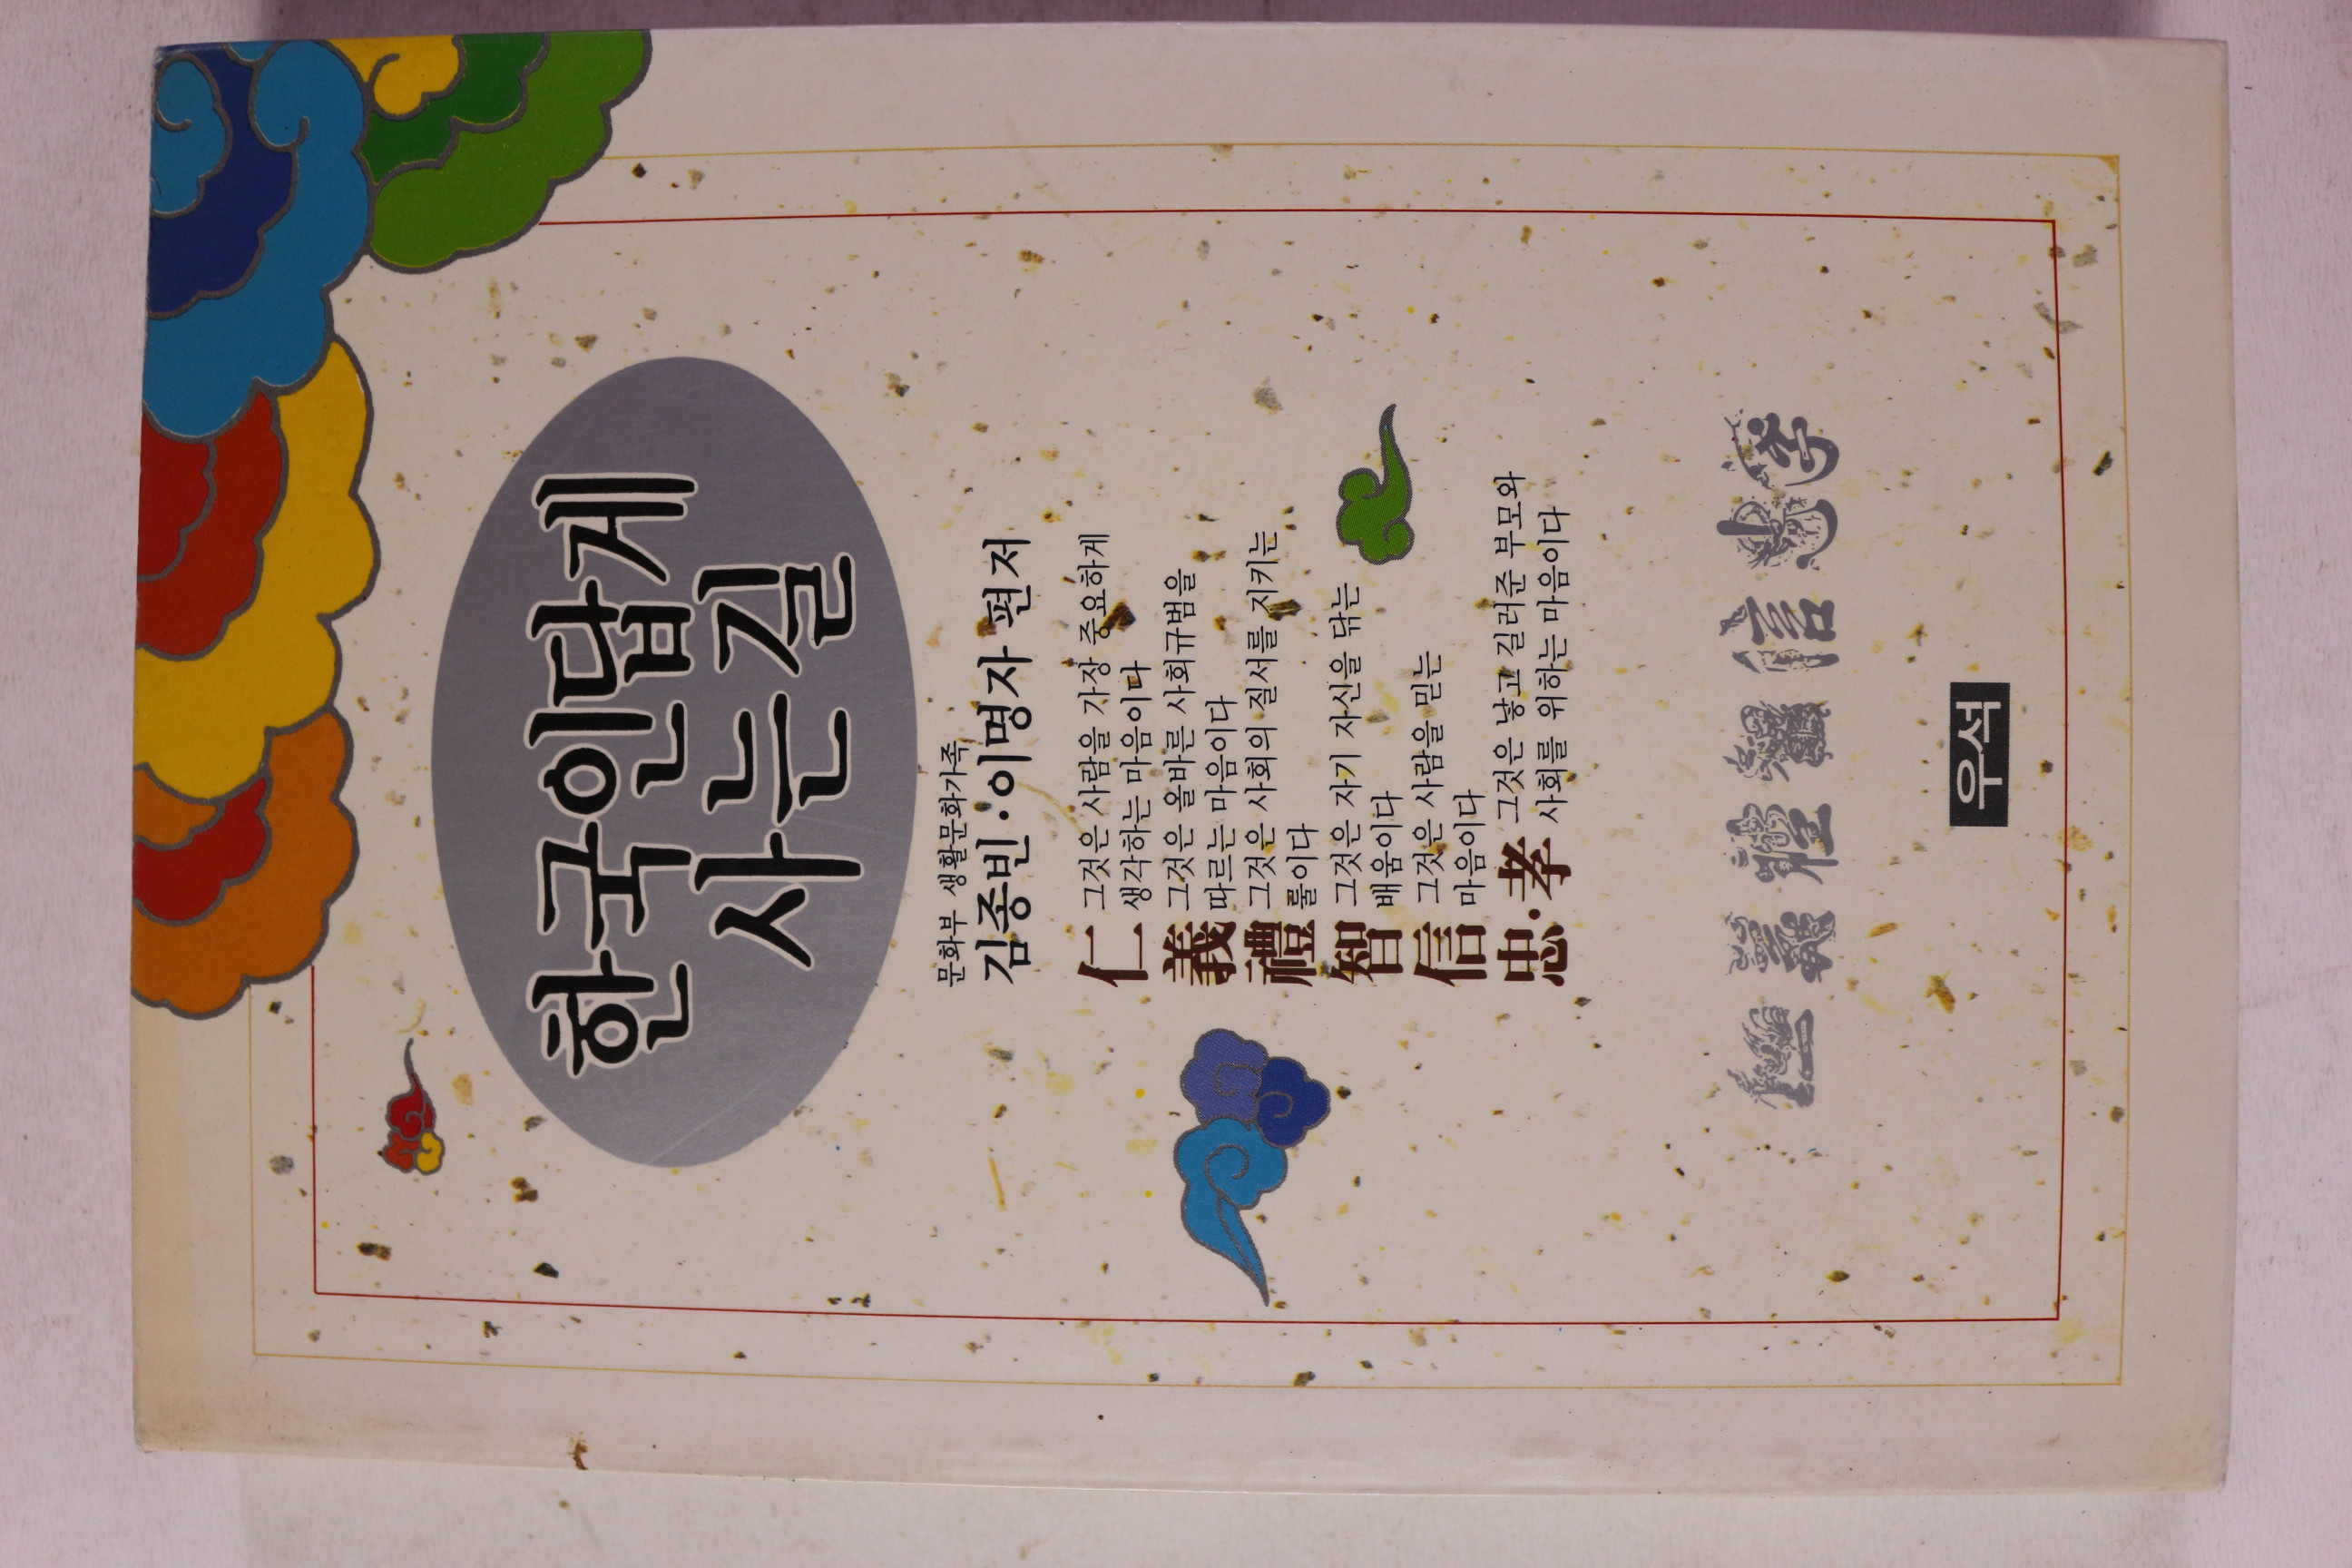 한국인답게
사는 길
문화부 생활문화가족
김종빈·이명자 편저
仁 그것은 사람을 가장 중요하게
생각하는 마음이다
義 그것은 올바른 사회규범을
따르는 마음이다
禮 그것은 사회의 질서를 지키는
룰이다
智 그것은 자기 자신을 닦는
배움이다
信 그것은 사람을 믿는
마음이다
忠·孝 그것은 낳고 길러준 부모와
사회를 위하는 마음이다
信忠孝
우석